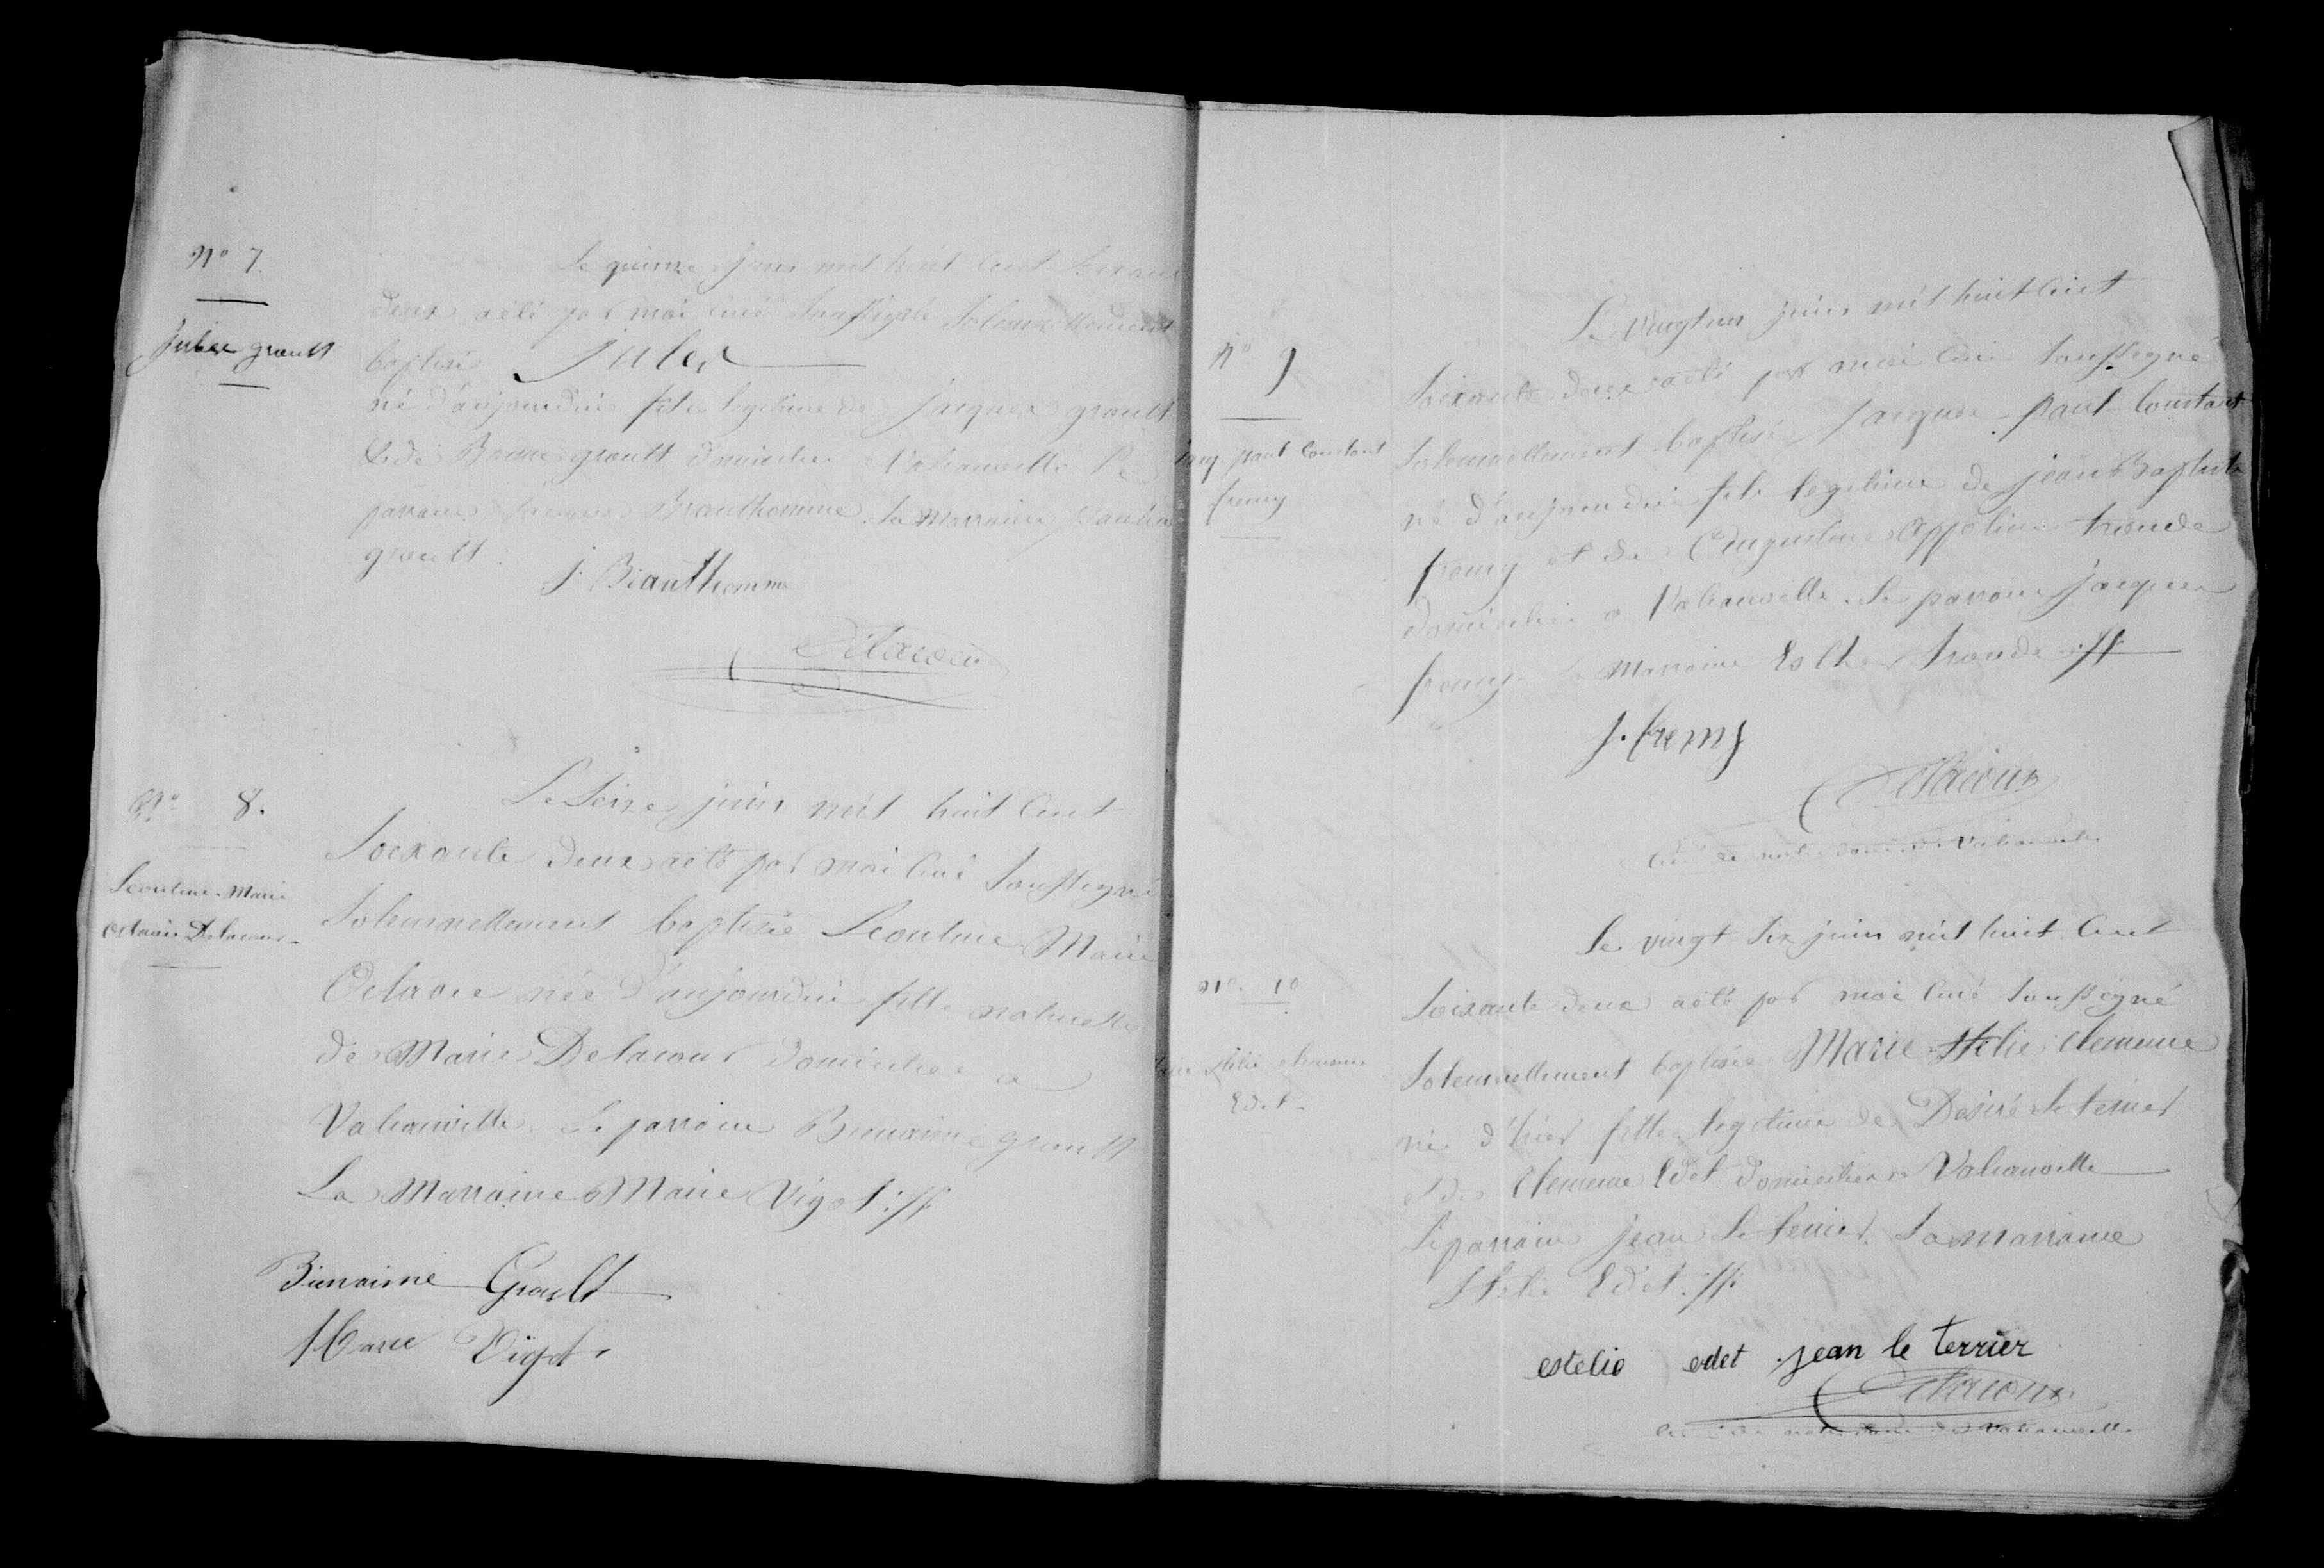 N° 7.
Jules grault
Le quinze juin mil huit cent soixante
deux a été par moi curé soussigné solennellement
baptisé Jules
né d'aujourdui fils legitime de jacques grault
et de grault domicilies a Vatrauville Le
parrain Brauthomme. La Marraine
grault.
J. Brauthomme
Delacour
N° 8.
Leontine Marie
Octavie Delacour
Le Seize juin mil huit cent
Soixante deux a été par moi curé soussigné
Solennellement baptisée Leontine Marie
Octavie née d'aujourdui fille naturelle
de Marie Delacour domiciliee a
Vatrauville. Le parrain Bienaimé grault
La Marraine Marie Vigot ./f
Bienaimé Grault
Marie Vigot
N° 9
jacq. paul Constant
fremy
Le vingt juin mil huit cent
Soixante deux a été par moi curé soussigné
Solennellement baptisé Jacques - Paul Constant
né d'aujourdui fils legitime de jean Baptiste
fremy et de Augustine Appoline
domicilies a Vatrauville. Le parrain Jacques
fremy La Marraine Esther
J. fremy
Delacour
Curé de notre dame de Vatrauville
N° 10
Marie Stelie clemence
Edet
Le vingt six juin mil huit cent
Soixante deux a été par moi curé soussigné
Solennellement baptisée Marie Stelie clemence
née d'hier fille legitime de Désiré le terrier
et de Clemence Edet domicilies a Vatrauville
Le parrain jean le terrier. La marraine
Stelie Edet ./f
estelie edet jean le terrier
Delacour
Curé de notre dame de Vatrauville